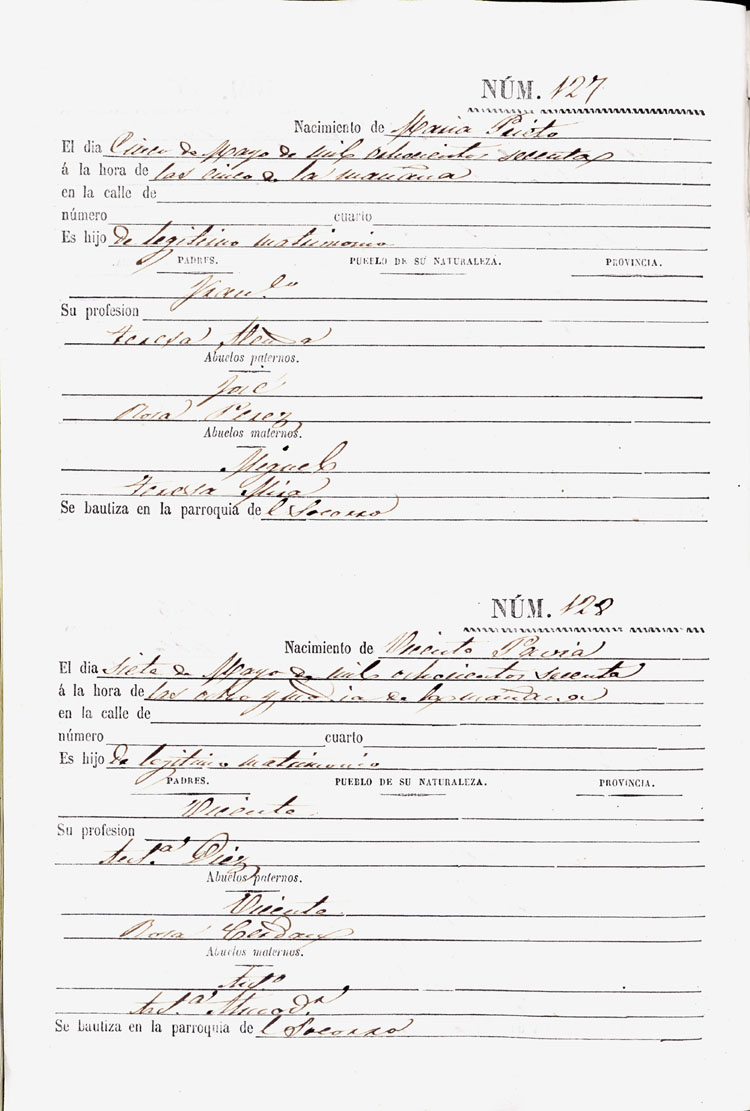 NÚM. 127
Nacimiento de Maria Prieto
El dia Cinco de Mayo de mil ochocientos sesenta
á la hora de las cinco de la mañana
en la calle de
número cuarto
Es hijo de legitimo matrimonio
PADRES. PUEBLO DE SU NATURALEZA. PROVINCIA.
Fran.co
Su profesion
Teresa
Abuelos paternos.
José
Rosa Perez
Abuelos maternos.
Miguel
Teresa Mira
Se bautiza en la parroquia de l Socorro
NÚM. 128
Nacimiento de Vicente Pavia
El dia siete de Mayo de mil ochocientos sesenta
á la hora de las ocho y media de la mañana
en la calle de
número cuarto
Es hijo de legitimo matrimonio
PADRES. PUEBLO DE SU NATURALEZA. PROVINCIA.
Vicente
Su profesion
Ant.a Diez
Abuelos paternos.
Vicente
Rosa Cerdan
Abuelos maternos.
Ant.o
Ant.a
Se bautiza en la parroquia de l Socorro